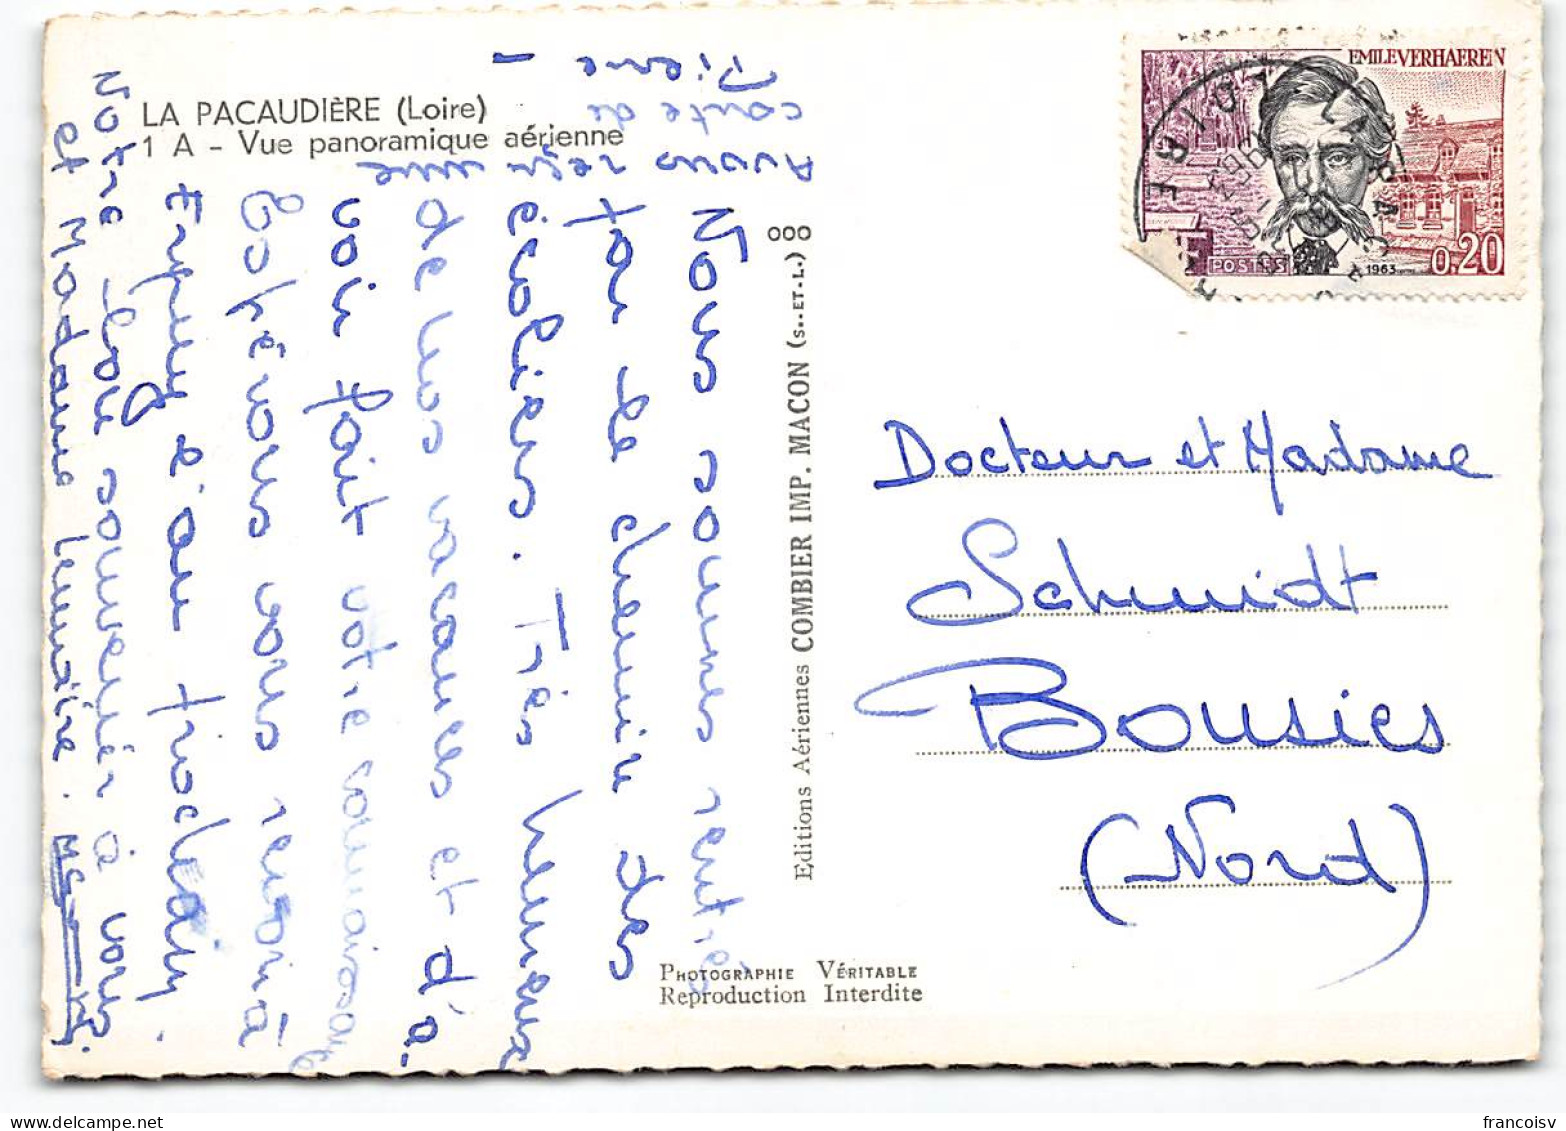 LA PACAUDIÈRE (Loire)
1 A - Vue panoramique aérienne
Nous sommes rentrés
par le chemin des
écoliers. Très heureux
de nos vacances et d'a-
voir fait votre connaissance
Espérons vous revoir à
Erquy l'an prochain.
Notre bon souvenir à vous
et Madame Lemière.
Avons reçu une
carte de
Pierre -
Editions Aériennes COMBIER IMP. MACON (S.-ET-L.) 000
PHOTOGRAPHIE VÉRITABLE
Reproduction Interdite
EMILE VERHAEREN
POSTES
1963
0,20
Docteur et Madame
Schmidt
Bousies
(Nord)
francoisv